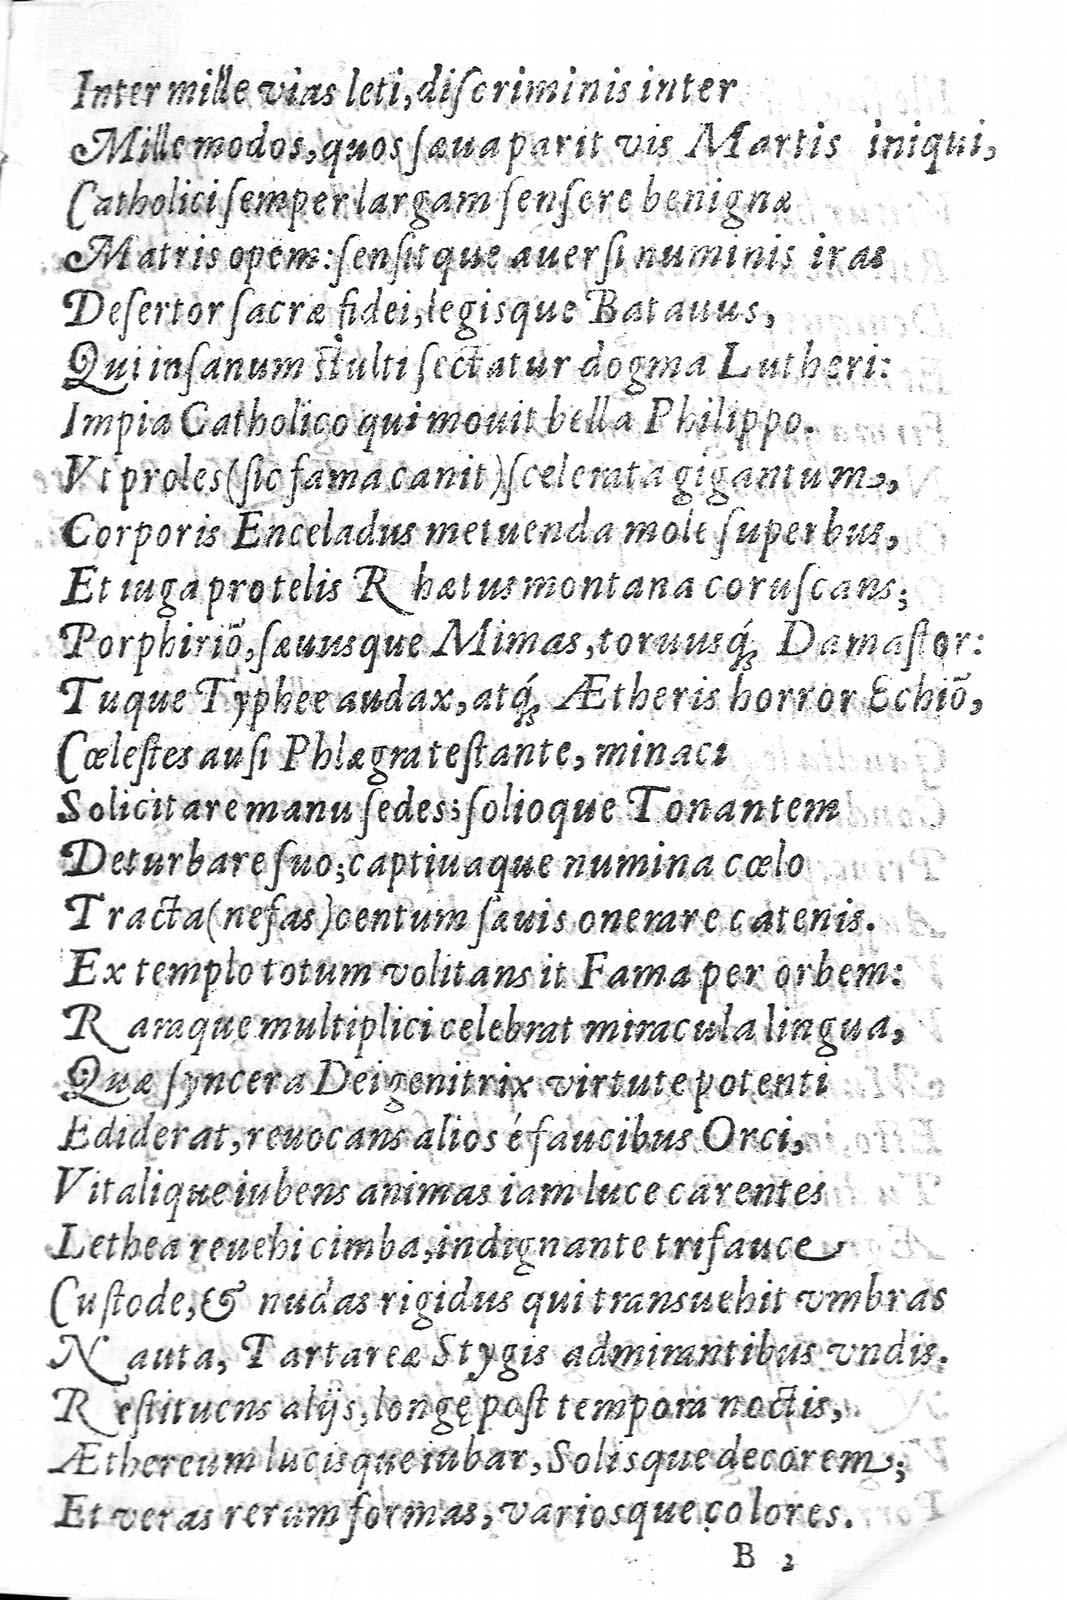 Inter mille vias leti, diſcriminis inter
Mille modos, quos ſæua parit vis Martis iniqui,
Catholici ſemper largam ſenſere benignæ
Matris opem: ſenſitque auerſi numinis iras
Deſertor ſacræ fidei, legisque Batauus,
Qui inſanum ſtulti ſectatur dogma Lutheri:
Impia Catholico qui mouit bella Philippo.
Vt proles (ſic fama canit) ſcelerata gigantum,
Corporis Enceladus metuenda mole ſuperbus,
Et iuga pro telis Rhætus montana coruſcans;
Porphiriõ, ſæuusque Mimas, toruusq́; Damaſtor:
Tuque Typhee audax, atq́; Ætheris horror Echiõ,
Cœleſtes auſi Phlægra teſtante, minaci
Solicitare manu ſedes; ſolioque Tonantem
Deturbare ſuo; captiuaque numina cœlo
Tracta (nefas) centum ſæuis onerare catenis.
Ex templo totum volitans it Fama per orbem:
Raraque multiplici celebrat miracula lingua,
Quæ ſyncera Deigenitrix virtute potenti
Ediderat, reuocans alios é faucibus Orci,
Vitalique iubens animas iam luce carentes
Lethea reuehi cimba, indignante trifauce
Cuſtode, & nudas rigidus qui transuehit vmbras
Nauta, Tartareæ Stygis admirantibus vndis.
Reſtituens alijs, longę poſt tempora noctis,
Æthereum lucisque iubar, Solisque decorem;
Et veras rerum formas, variosque colores.
B 2